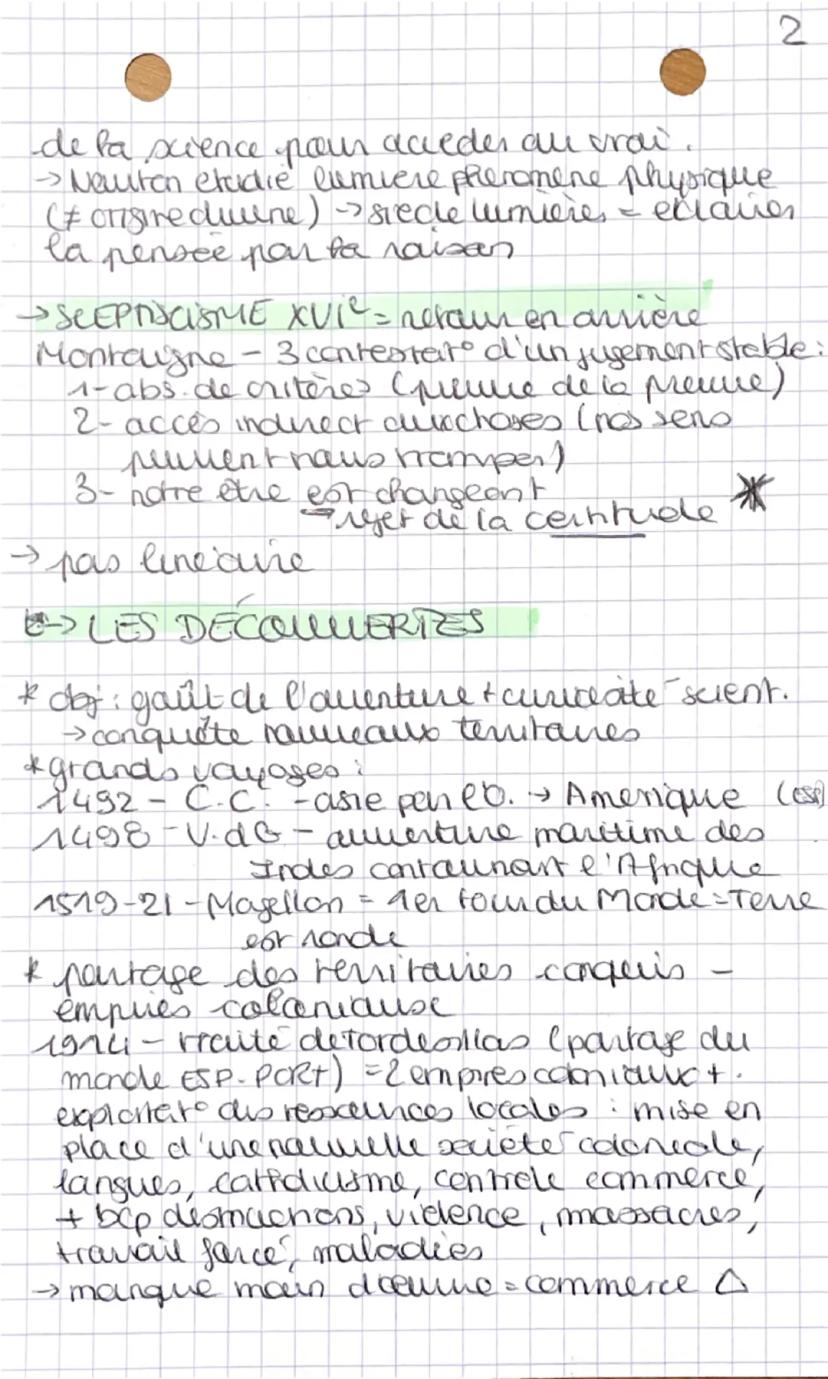 2
de la science pour acceder au vrai.
→ Newton etudie lumiere phenomene physique
(≠ origine divine) → siecle lumières = eclairer
la pensée par la raison
→ SCEPTISCISME XVIe = retour en arrière
Montaigne - 3 contestat° d'un jugement stable :
1- abs. de critères (preuve de la preuve)
2- accès indirect aux choses (nos sens
peuvent nous tromper)
3- notre être est changeant
→ rejet de la certitude *
→ pas linéaire
→ LES DÉCOUVERTES
* obj : goût de l'aventure + curiosité scient.
→ conquête nouveaux territoires
* grands voyages :
1492 - C.C. - asie par l'O. → Amerique (esp)
1498 - V.dG - ouverture maritime des
Indes contournant l'Afrique
1519-21 - Magellan = 1er tour du Monde = Terre
est ronde
* partage des territoires conquis -
empires coloniaux
1914 - traité de Tordesillas (partage du
monde ESP-PORT) = 2 empires coloniaux + .
exploitat° des ressources locales : mise en
place d'une nouvelle société coloniale,
langues, catholicisme, controle commerce,
+ bcp destructions, violence, massacres,
travail forcé, maladies
→ manque main d'oeuvre = commerce △